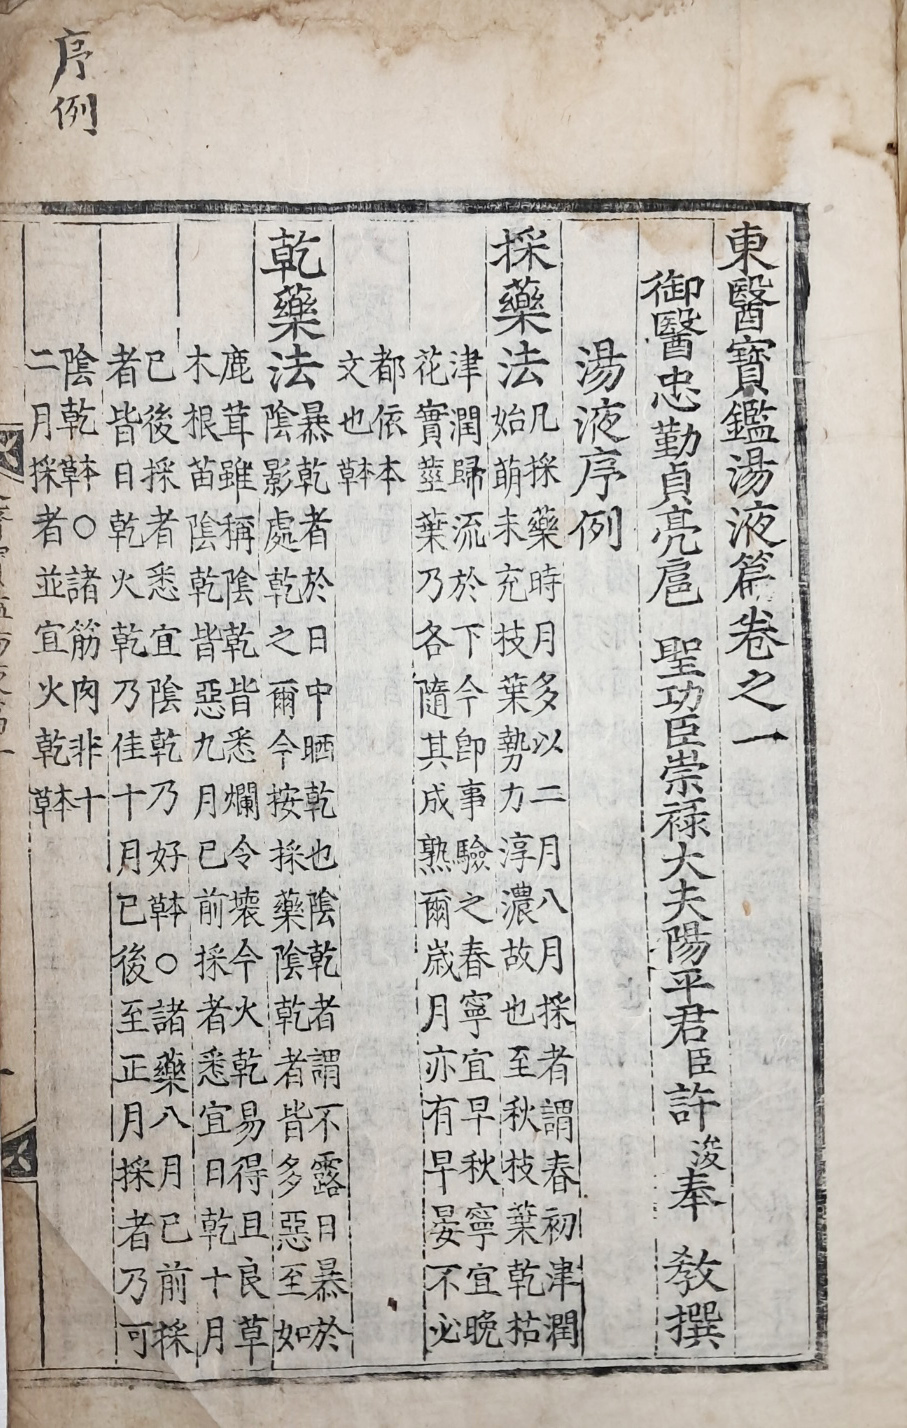 序例
東醫寶鑑湯液篇卷之一
御醫忠勤貞亮扈 聖功臣崇祿大夫陽平君臣許浚奉 教撰
湯液序例
採藥法
凡採藥時月多以二月八月採者謂春初津潤
始萌未充枝葉勢力淳濃故也至秋枝葉乾枯
津潤歸流於下今卽事驗之春寧宜早秋寧宜晚
花實莖葉乃各隨其成熟爾歲月亦有早晏不必
都依本
文也本草
乾藥法
暴乾者於日中晒乾也陰乾者謂不露日暴於
陰影處乾之爾今按採藥陰乾者皆多惡至如
鹿茸雖稱陰乾皆悉爛令壞今火乾易得且良草
木根苗陰乾皆惡九月已前採者悉宜日乾十月
已後採者悉宜陰乾乃好本草○諸藥八月已前採
者皆日乾火乾乃佳十月已後至正月採者乃可
陰乾本草○諸筋肉非十
二月採者並宜火乾本草